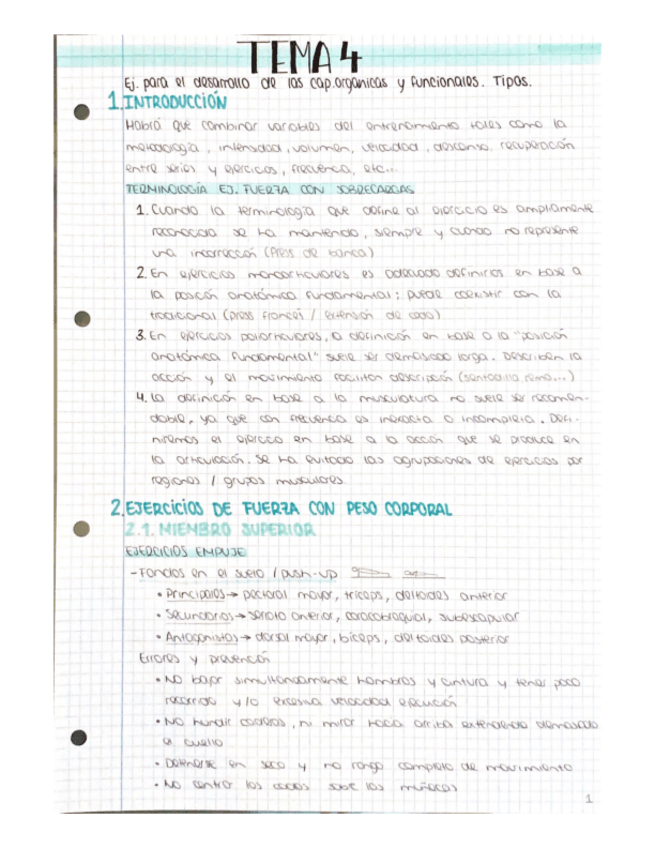 TEMA 4
Ej. para el desarrollo de las cap. orgánicas y funcionales. Tipos.
1. INTRODUCCIÓN
Habrá que combinar variables del entrenamiento tales como la
metodología, intensidad, volumen, velocidad, descanso, recuperación
entre series y ejercicios, frecuencia, etc...
TERMINOLOGÍA EJ. FUERZA CON SOBRECARGAS
1. Cuando la terminología que define al ejercicio es ampliamente
reconocida se ha mantenido, siempre y cuando no represente
una incorrección (Press de banca)
2. En ejercicios monoarticulares es adecuado definirlos en base a
la posición anatómica fundamental; puede coexistir con la
tradicional (press francés / extensión de codo)
3. En ejercicios poliarticulares, la definición en base a la "posición
anatómica fundamental" suele ser demasiado larga. Describen la
acción y el movimiento facilitan descripción (sentadilla, remo...)
4. La definición en base a la musculatura no suele ser recomen-
dable, ya que con frecuencia es inexacta o incompleta. Defi-
niremos el ejercicio en base a la acción que se produce en
la articulación. Se ha evitado las agrupaciones de ejercicios por
regiones / grupos musculares.
2. EJERCICIOS DE FUERZA CON PESO CORPORAL
2.1. MIEMBRO SUPERIOR
EJERCICIOS EMPUJE
- Fondos en el suelo / push-up
• Principales → pectoral mayor, tríceps, deltoides anterior
• Secundarios → serrato anterior, coracobraquial, subescapular
• Antagonistas → dorsal mayor, bíceps, deltoides posterior
Errores y prevención
• No bajar simultáneamente hombros y cintura y tener poco
recorrido y/o excesiva velocidad ejecución
• No hundir caderas, ni mirar hacia arriba extendiendo demasiado
el cuello
• Detenerse en seco y no rango completo de movimiento
• No centrar los codos sobre las muñecas
1